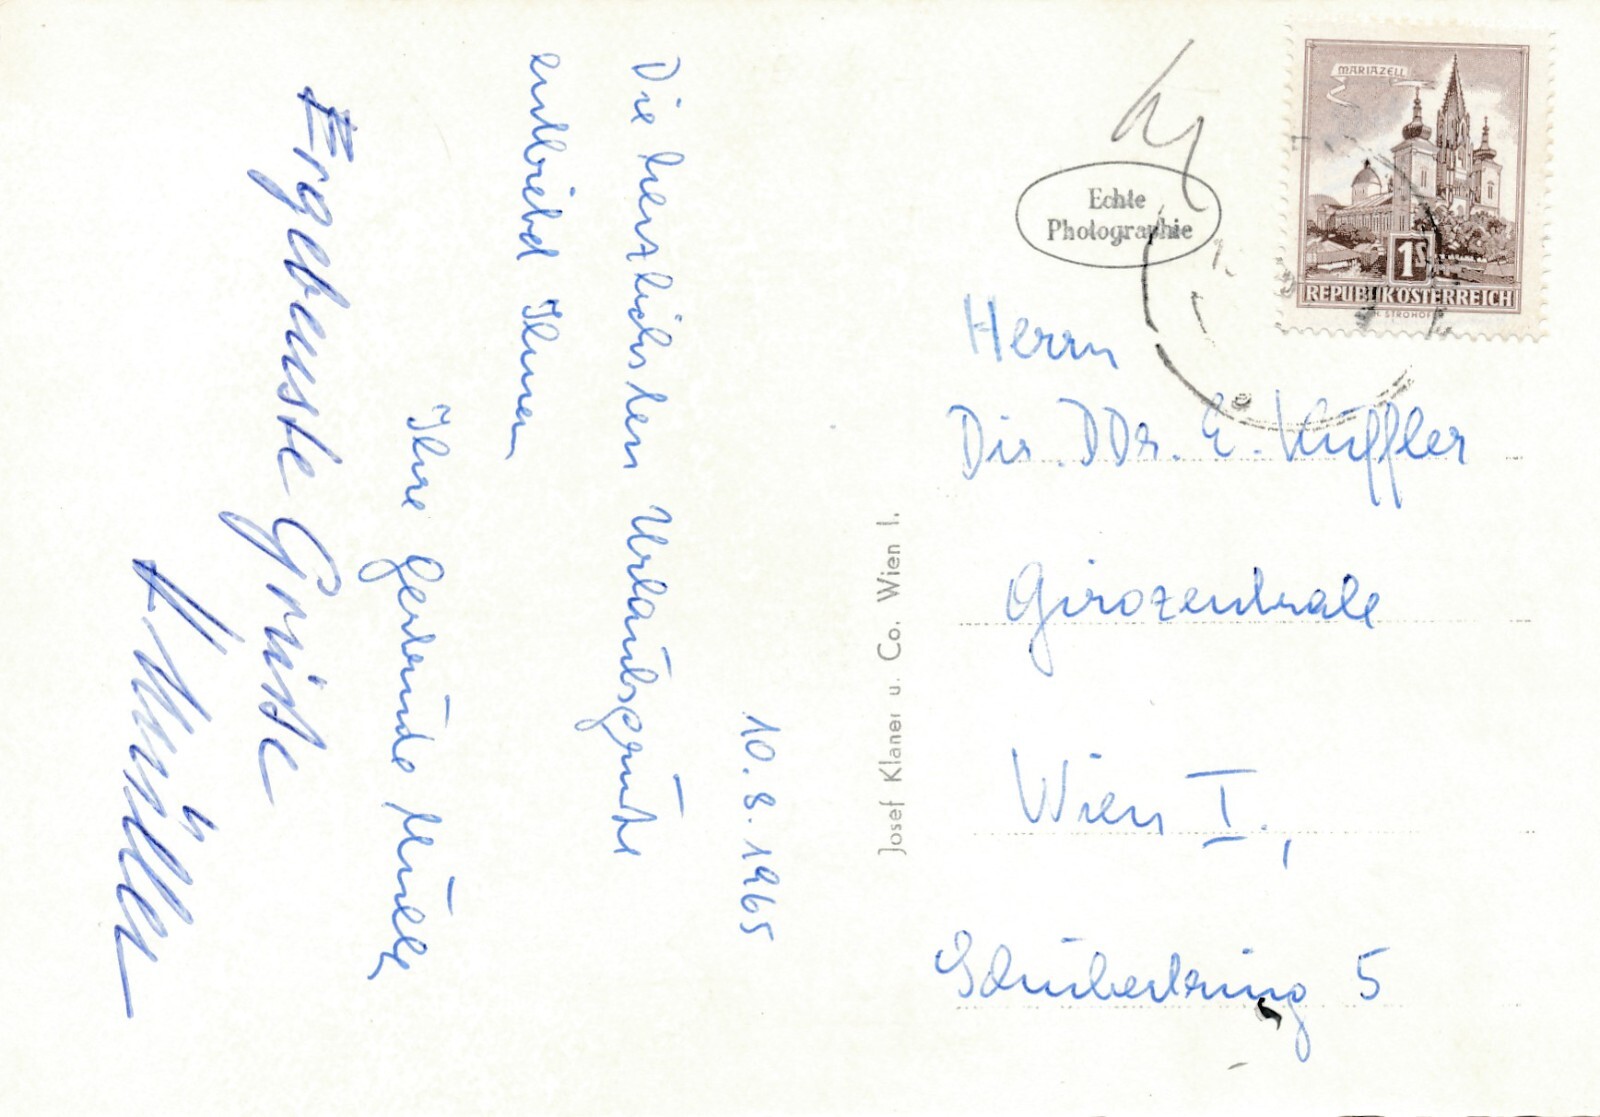 10.8.1965
Die herzlichsten Urlaubsgrüße
entbietet Ihnen
Ihre Gerlinde Müller
Ergebenste Grüße
H Müller
Josef Klaner u. Co. Wien I.
Echte
Photographie
MARIAZELL
1S
REPUBLIK ÖSTERREICH
Herrn
Dir. DDr. E. Kuffler
Girozentrale
Wien I.,
Schubertring 5